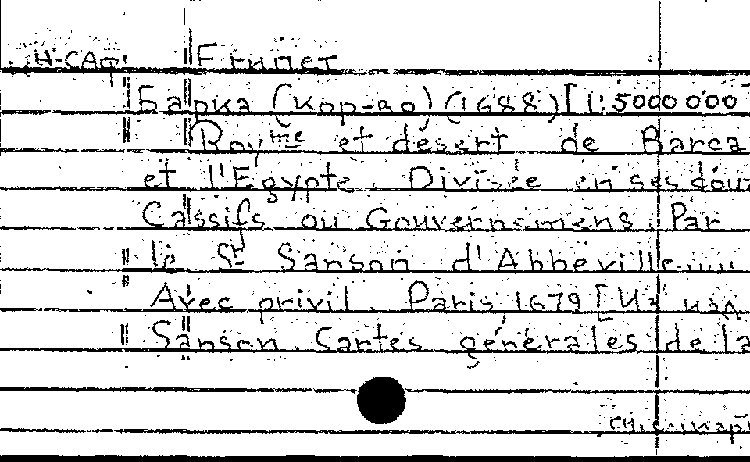 Н-САф. Египет
Барка (кор-во) (1688) [1:5000000
Royme et desert de Barca
et l'Egypte. Divisée en ses douz
Cassifs ou Gouvernemens. Par
le Sr Sanson d'Abbeville
Avec privil. Paris, 1679 [Из изд.
Sanson. Cartes générales de la
См.